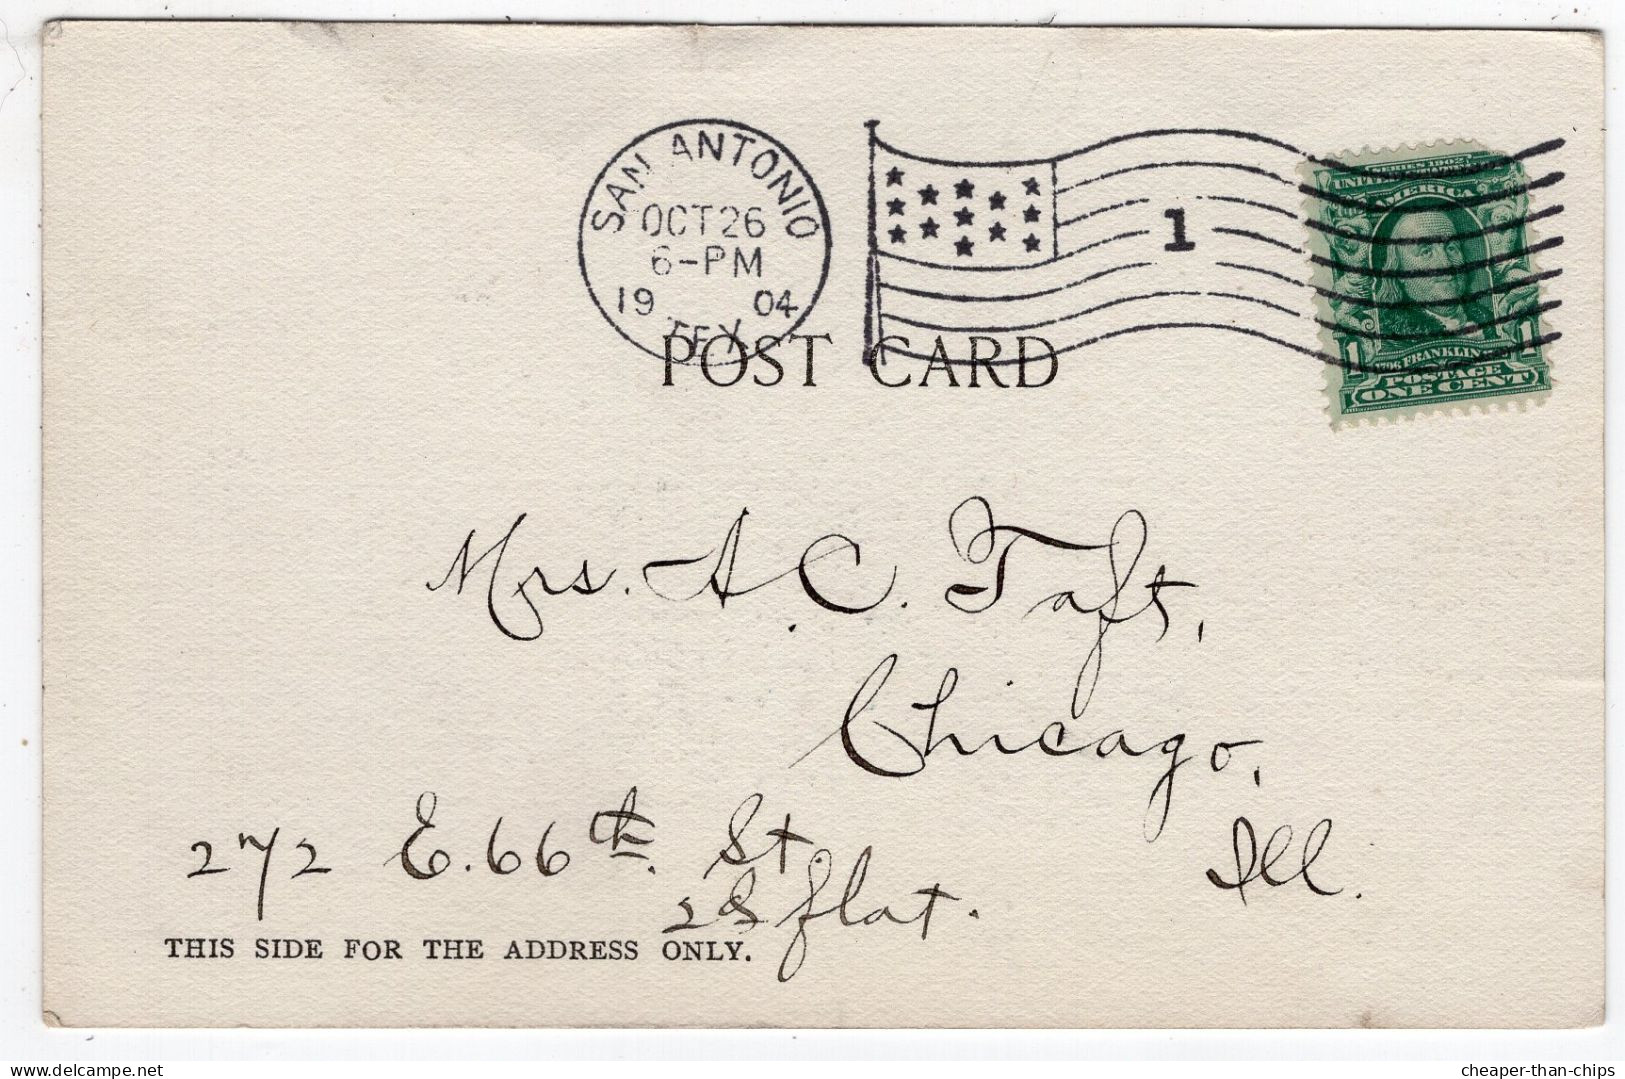 SAN ANTONIO
OCT 26
6-PM
19 04
TEX
1
SERIES 1902
UNITED STATES OF
AMERICA
FRANKLIN
1 POSTAGE 1
ONE CENT
POST CARD
Mrs. A. C. Taft,
Chicago,
272 E. 66th. St.
Ill.
2d flat.
THIS SIDE FOR THE ADDRESS ONLY.
cheaper-than-chips